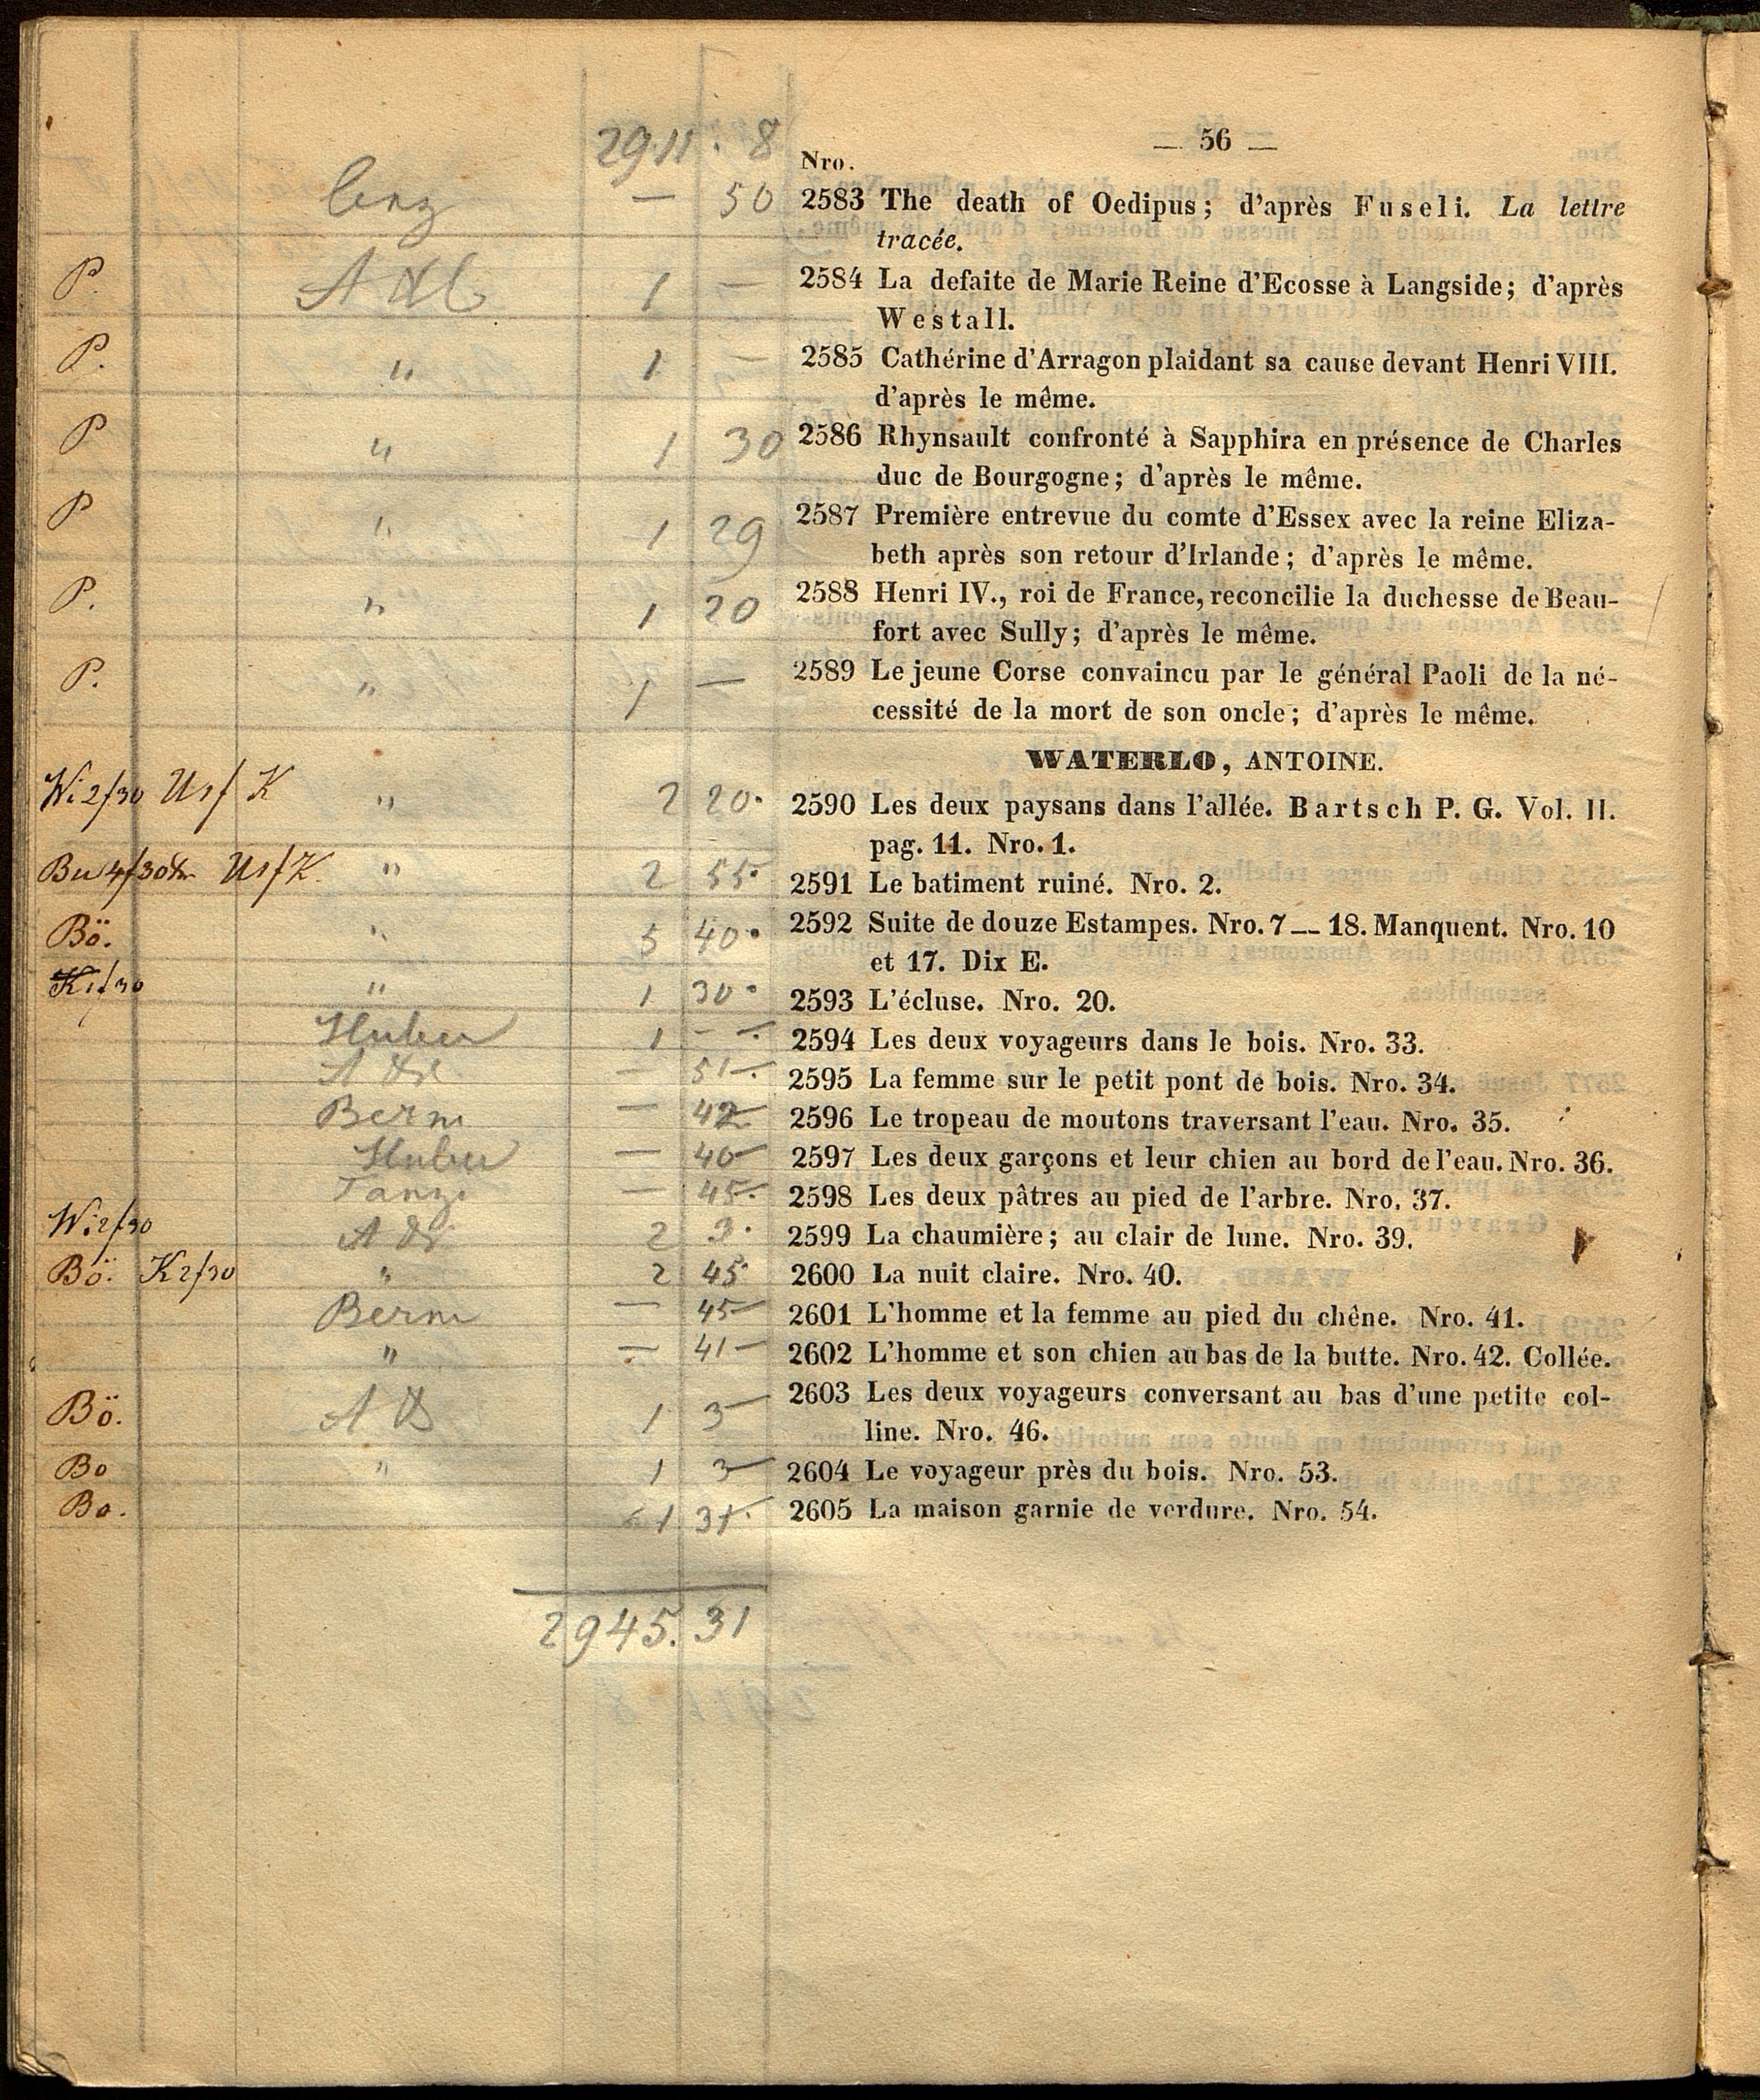 — 56 —
2911. 8
Nro.
— 50 2583 The death of Oedipus; d'après Fuseli. La lettre
tracée.
P. 1 — 2584 La defaite de Marie Reine d'Ecosse à Langside; d'après
Westall.
P. " 1 — 2585 Cathérine d'Arragon plaidant sa cause devant Henri VIII.
d'après le même.
P " 1 30 2586 Rhynsault confronté à Sapphira en présence de Charles
duc de Bourgogne; d'après le même.
P " 1 29 2587 Première entrevue du comte d'Essex avec la reine Eliza-
beth après son retour d'Irlande; d'après le même.
P. " 1 20 2588 Henri IV., roi de France, reconcilie la duchesse de Beau-
fort avec Sully; d'après le même.
P. " 1 — 2589 Le jeune Corse convaincu par le général Paoli de la né-
cessité de la mort de son oncle; d'après le même.
WATERLO, ANTOINE.
Wi 2/30 K " 2 20. 2590 Les deux paysans dans l'allée. Bartsch P. G. Vol. II.
pag. 11. Nro. 1.
" 2 55. 2591 Le batiment ruiné. Nro. 2.
Bö. " 5 40. 2592 Suite de douze Estampes. Nro. 7 — 18. Manquent. Nro. 10
et 17. Dix E.
K 1/30 " 1 30. 2593 L'écluse. Nro. 20.
Huber 1 — 2594 Les deux voyageurs dans le bois. Nro. 33.
— 51 2595 La femme sur le petit pont de bois. Nro. 34.
Berm — 42 2596 Le tropeau de moutons traversant l'eau. Nro. 35.
Huber — 40 2597 Les deux garçons et leur chien au bord de l'eau. Nro. 36.
— 45 2598 Les deux pâtres au pied de l'arbre. Nro. 37.
Wi 2/30 2 3. 2599 La chaumière; au clair de lune. Nro. 39.
Bö. K 2/30 " 2 45 2600 La nuit claire. Nro. 40.
Berm — 45 2601 L'homme et la femme au pied du chêne. Nro. 41.
" — 41 2602 L'homme et son chien au bas de la butte. Nro. 42. Collée.
Bö. 1 3 2603 Les deux voyageurs conversant au bas d'une petite col-
line. Nro. 46.
Bo " 1 3 2604 Le voyageur près du bois. Nro. 53.
Bo. 1 31 2605 La maison garnie de verdure. Nro. 54.
2945. 31